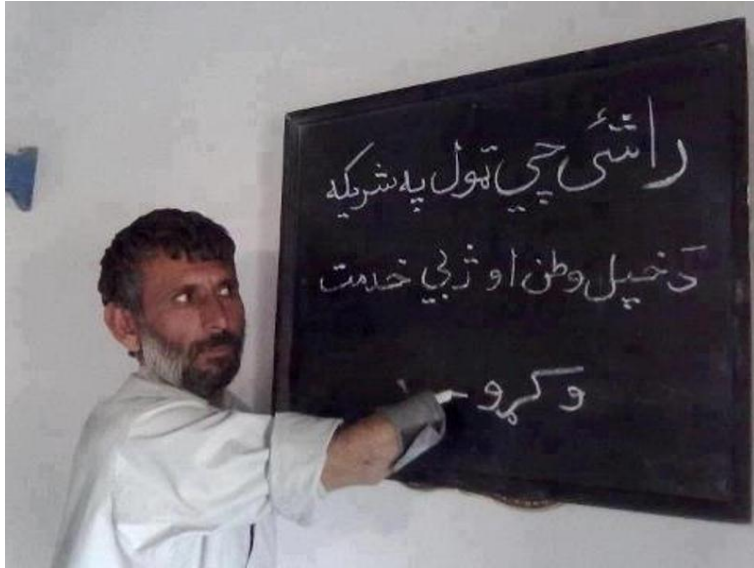 راشئ چي ټول په شريکه
دَ خپل وطن او ژبي خدمت
وکړو -